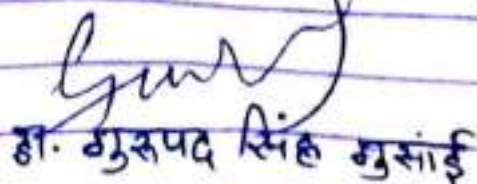 डा. गुरूपद सिंह गुसांई